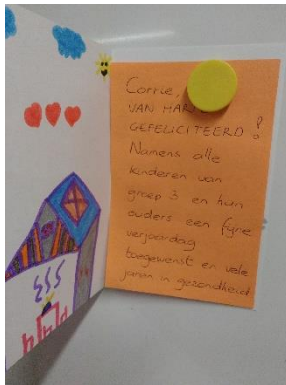 Corrie,
VAN HAR
GEFELICITEERD!
Namens alle
kinderen van
groep 3 en hun
ouders een fijne
verjaardag
toegewenst en vele
jaren in gezondheid